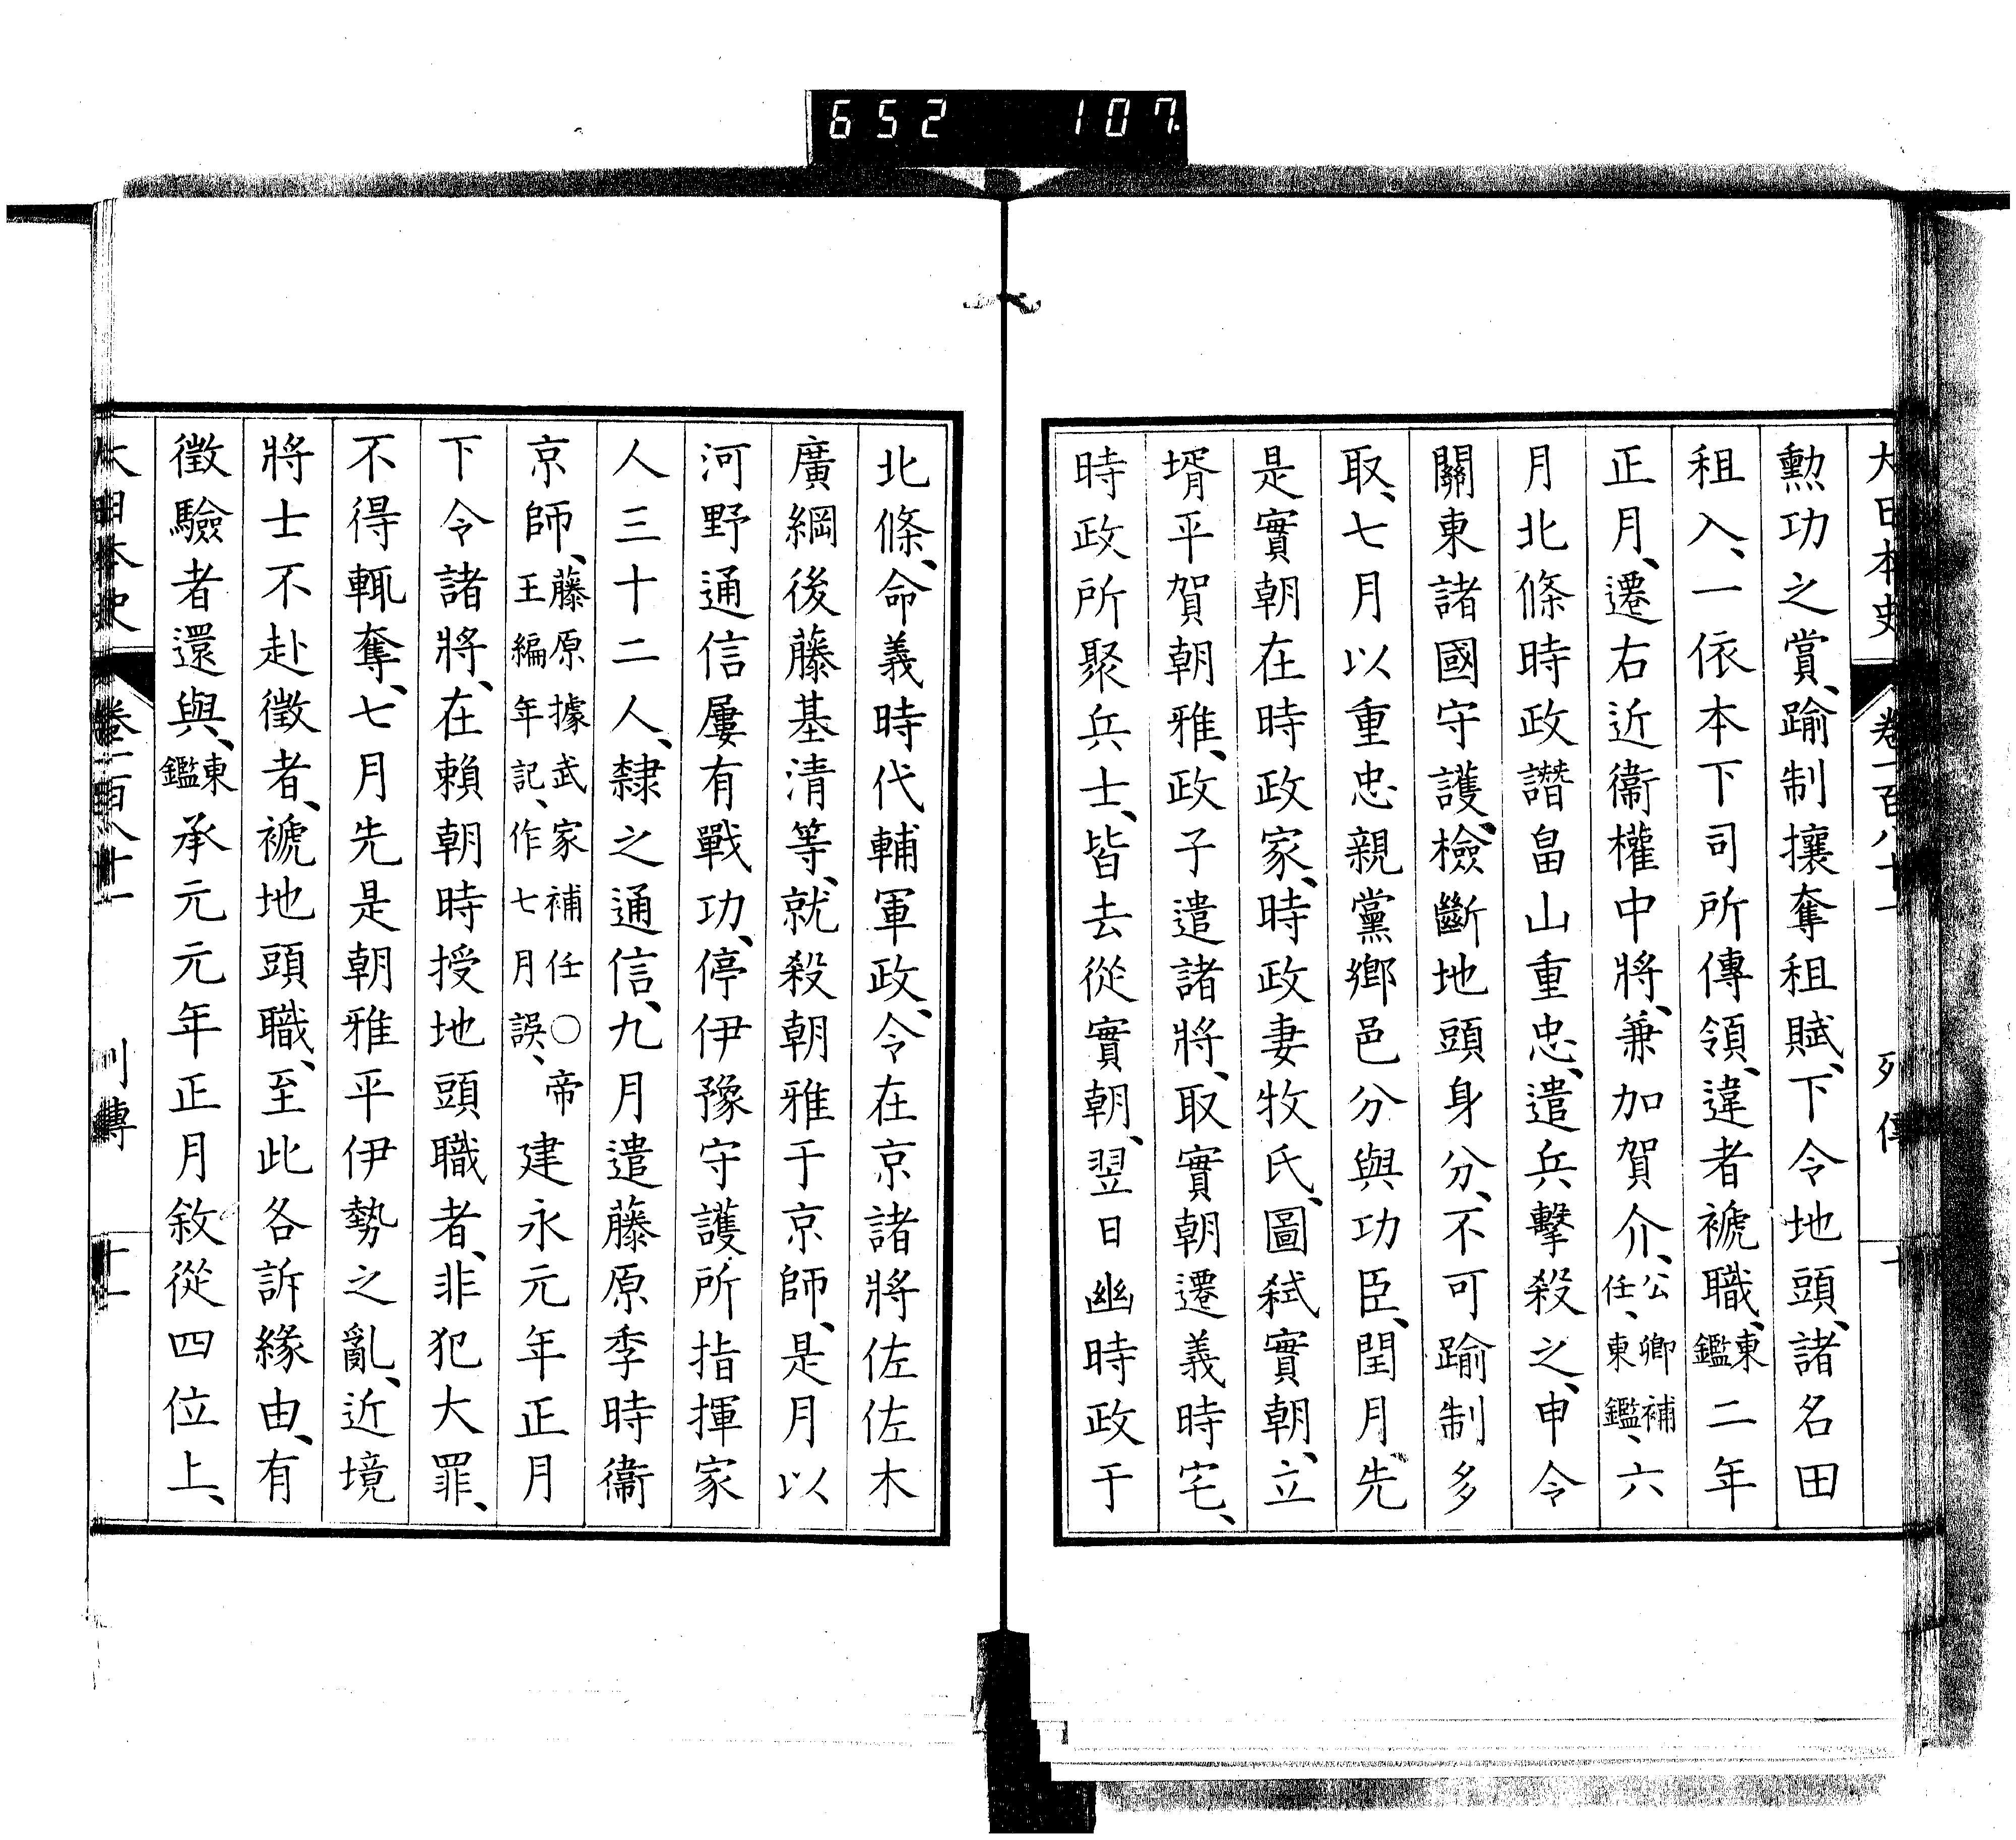 652 107.
大日本史 卷一百八十一 列傳 十
勲功之賞、踰制攘奪租賦、下令地頭、諸名田
租入、一依本下司所傳領、違者褫職、東鑑二年
正月、遷右近衞權中將、兼加賀介、公卿補任、東鑑、六
月北條時政譖畠山重忠、遣兵擊殺之、申令
關東諸國守護、檢斷地頭身分、不可踰制多
取、七月以重忠親黨鄉邑分與功臣、閏月、先
是實朝在時政家、時政妻牧氏、圖弑實朝、立
壻平賀朝雅、政子遣諸將、取實朝遷義時宅、
時政所聚兵士、皆去從實朝、翌日幽時政于
北條、命義時代輔軍政、令在京諸將佐佐木
廣綱後藤基清等、就殺朝雅于京師、是月以
河野通信屢有戰功、停伊豫守護所指揮家
人三十二人、隸之通信、九月遣藤原季時衞
京師、藤原據武家補任○帝王編年記、作七月誤、建永元年正月
下令諸將、在賴朝時授地頭職者、非犯大罪、
不得輒奪、七月先是朝雅平伊勢之亂、近境
將士不赴徵者、褫地頭職、至此各訴緣由、有
徵驗者還與、東鑑承元元年正月敘從四位上、
大日本史 卷一百八十一 列傳 十一